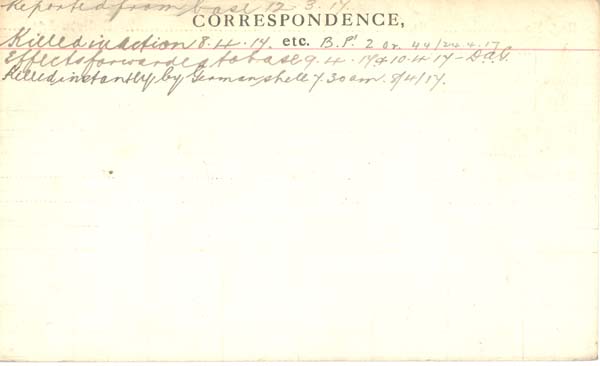 Reported from base 12.3.17.
CORRESPONDENCE,
Killed in action 8.4.17. etc. B.P! 2 Or. 44/24.4.17
Effects forwarded to base 9.4.17 & 10.4.17 - D.A.G.
Killed instantly by German shell 7.30 am. 8/4/17.